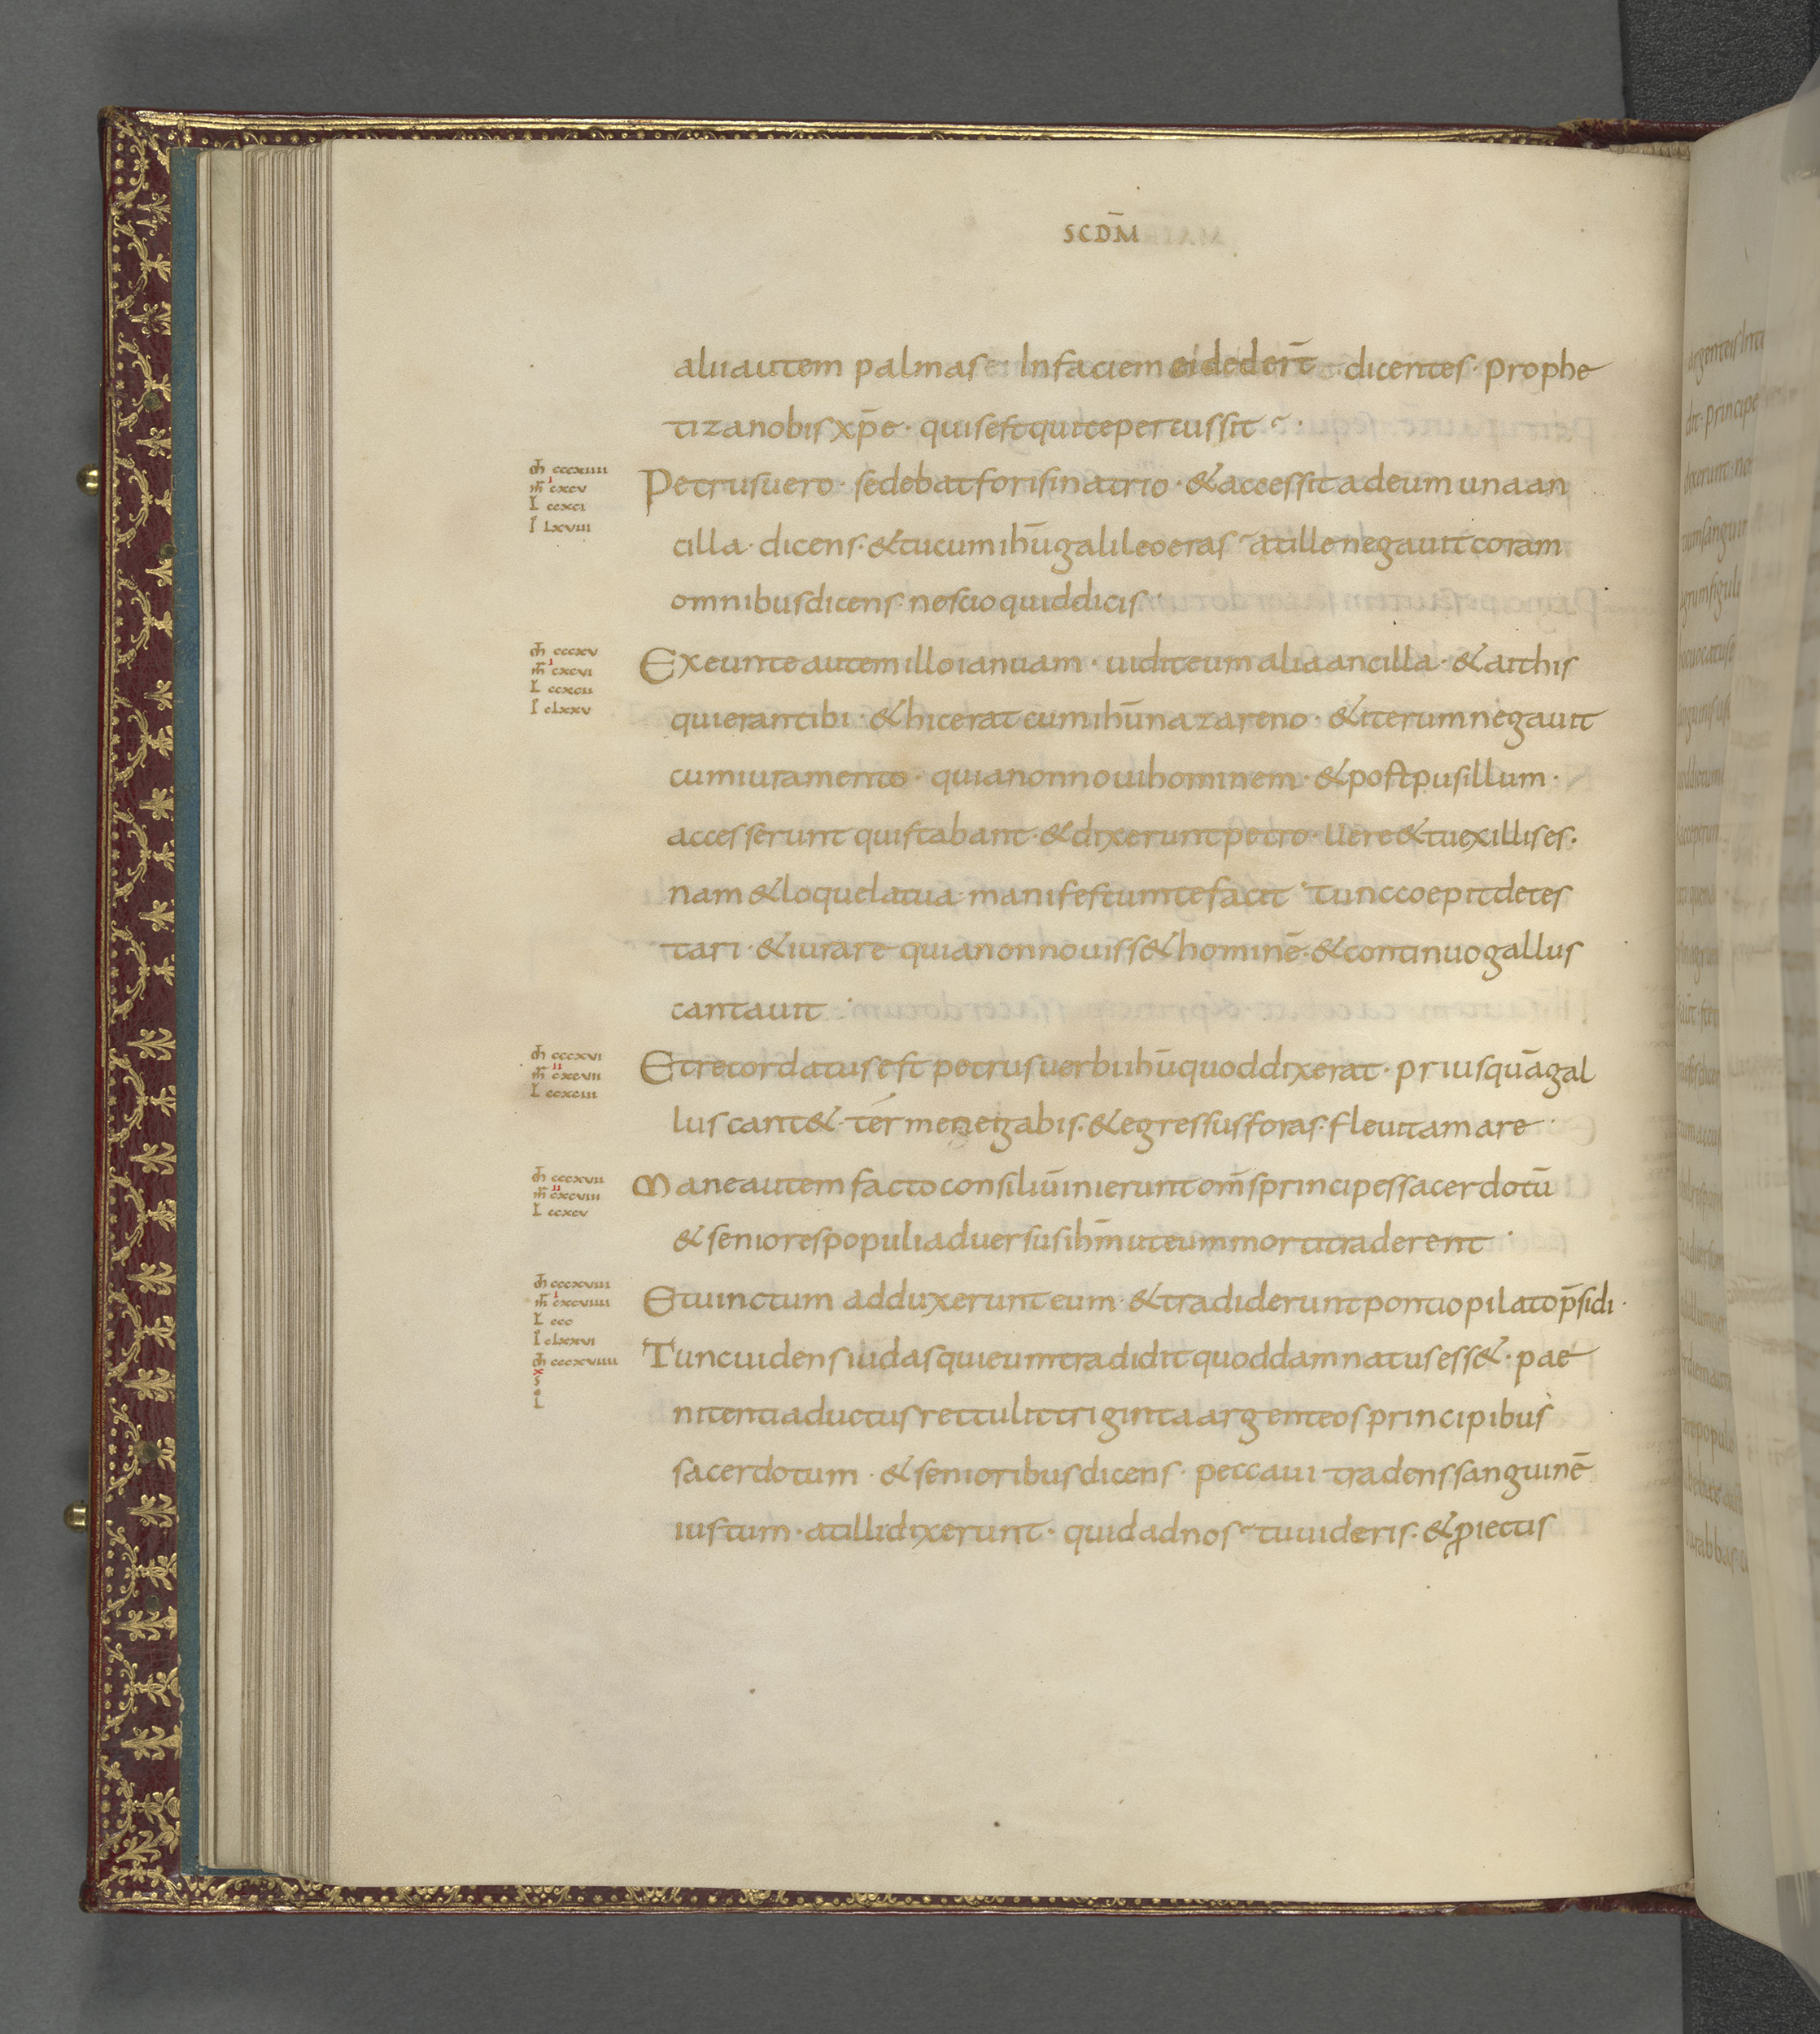 SCDM̄
alii autem palmas e in faciem ei dedert̄ · dicentes · prophe
tiza nobis xp̄e · quis est qui te percussit ·
m̄ cccxiiii
m̄r cxcv
L ccxci
I lxviii
Petrus uero · sedebat foris in atrio · & accessit ad eum una an
cilla · dicens · & tu cum ih̄u galileo eras · at ille negauit coram
omnibus dicens · nescio quid dicis ·
m̄ cccxv
m̄r cxcvi
L ccxcii
I clxxv
Exeunte autem illo ianuam · uidit eum alia ancilla · & ait his
qui erant ibi · & hic erat cum ih̄u nazareno · & iterum negauit
cum iuramento · quia non noui hominem · & post pusillum ·
accesserunt qui stabant · & dixerunt petro · uere & tu ex illis es ·
nam & loquela tua · manifestum te facit · tunc coepit detes
tari · & iurare quia non nouiss& hominē · & continuo gallus
cantauit ·
m̄ cccxvi
m̄r cxcvii
L ccxciii
Et recordatus est petrus uerbi ih̄u quod dixerat · priusquā gal
lus cant& · ter me negabis · & egressus foras · fleuit amare ·
m̄ cccxvii
m̄r cxcviii
L ccxcv
Mane autem facto consiliū inierunt om̄s principes sacerdotū
& seniores populi aduersus ih̄m ut eum morti traderent ·
m̄ cccxviii
m̄r cxcviiii
L ccc
I clxxvi
Et uinctum adduxerunt eum · & tradiderunt pontio pilato p̄sidi ·
m̄ cccxviiii
x
s
o
L
Tunc uidens iudas qui eum tradidit quod damnatus ess& · pae
nitentia ductus rettulit triginta argenteos principibus
sacerdotum · & senioribus dicens · peccaui tradens sanguinē
iustum · at illi dixerunt · quid ad nos · tu uideris · & ꝓiectis